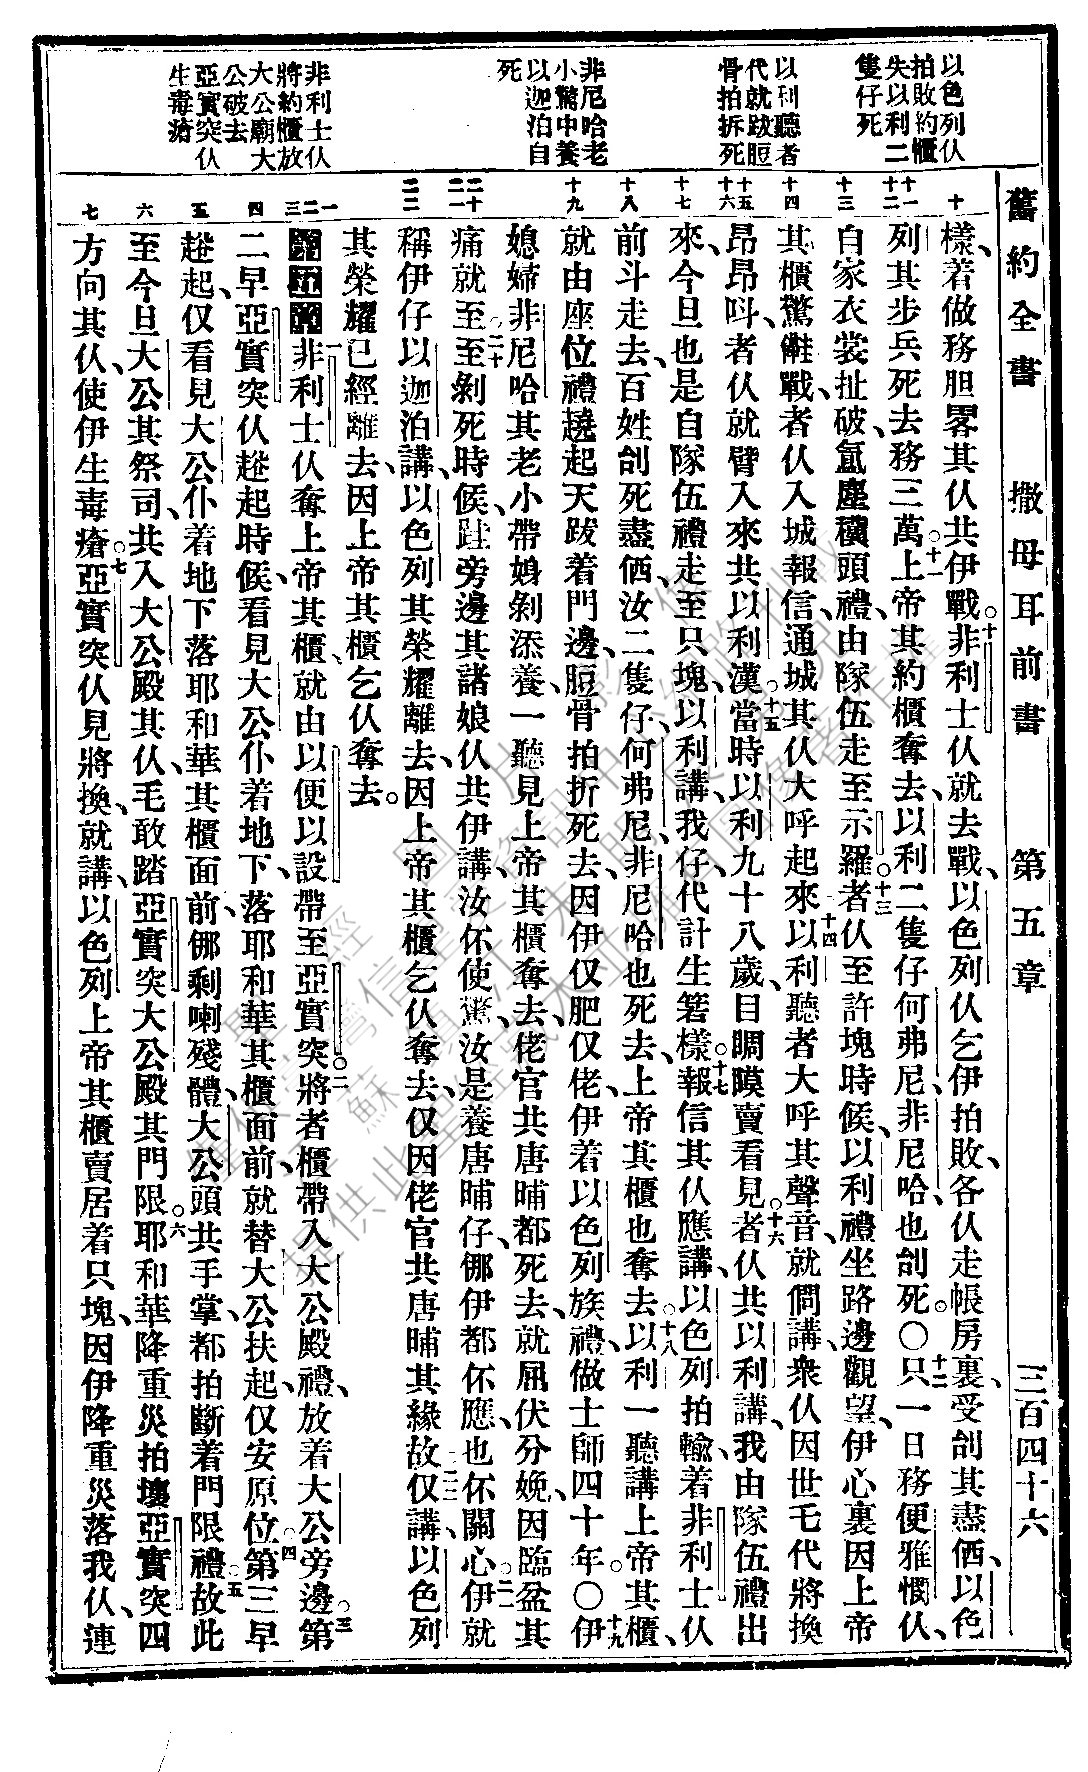 舊約全書 撒母耳前書 第五章 三百四十六
以色列仸
拍敗約櫃
失以利二
隻仔死
以利聽者
代就跋脰
骨拍折死
非尼哈老
小驚中養
以迦泊自
死
非利士仸
將約櫃放
大公廟大
公破去
亞實突仸
生毒瘡
十
十一
十二
十三
十四
十五
十六
十七
十八
十九
二十
二一
二二
一
二
三
四
五
六
七
樣、着做務胆畧其仸共伊戰。十非利士仸就去戰、以色列仸乞伊拍敗、各仸走帳房裏、受刣其盡価、以色
列其步兵死去務三萬。十一上帝其約櫃奪去、以利二隻仔何弗尼、非尼哈也刣死。〇十二只一日務便雅憫仸、
自家衣裳扯破、氲塵𥣡頭禮、由隊伍走至示羅。十三者仸至許塊時候、以利禮坐路邊觀望、伊心裏因上帝
其櫃驚𠌥戰、者仸入城報信、通城其仸大呼起來。十四以利聽者大呼其聲音、就問講、衆仸因世乇代將換
昂昂呌、者仸就臂入來共以利漢。十五當時以利九十八歲、目睭瞙賣看見。十六者仸共以利講、我由隊伍禮出
來、今旦也是自隊伍禮走至只塊、以利講、我仔、代計生簍樣。十七報信其仸應講、以色列拍輸着非利士仸
前斗走去、百姓刣死盡価、汝二隻仔何弗尼、非尼哈也死去、上帝其櫃也奪去。十八以利一聽講上帝其櫃、
就由座位禮趬起天跋着門邊、脰骨拍折死去、因伊仅肥仅佬、伊着以色列族禮做士師四十年。〇十九伊
媳婦非尼哈其老小、帶娚剝添養、一聽見上帝其櫃奪去、佬官共唐晡都死去、就屈伏分娩、因臨盆其
痛就至。二十至剝死時候、跓旁邊其諸娘仸共伊講、汝伓使驚、汝是養唐晡仔、㑚伊都伓應、也伓關心。二一伊就
稱伊仔以迦泊、講、以色列其榮耀離去、因上帝其櫃乞仸奪去、仅因佬官共唐晡其緣故。二二仅講、以色列
其榮耀已經離去、因上帝其櫃乞仸奪去。
第五章 一非利士仸奪上帝其櫃、就由以便以設帶至亞實突。二將者櫃帶入大公殿禮、放着大公旁邊。三第
二早、亞實突仸趖起時候、看見大公仆着地下、落耶和華其櫃面前、就替大公扶起仅安原位。四第三早
趖起、仅看見大公仆着地下落耶和華其櫃面前、㑚剩喇殘體、大公頭共手掌、都拍斷着門限禮。五故此
至今旦大公其祭司、共入大公殿其仸、乇敢踏亞實突大公殿其門限。六耶和華降重災拍壞亞實突四
方向其仸、使伊生毒瘡。七亞實突仸見將換、就講、以色列上帝其櫃賣居着只塊、因伊降重災落我仸、連